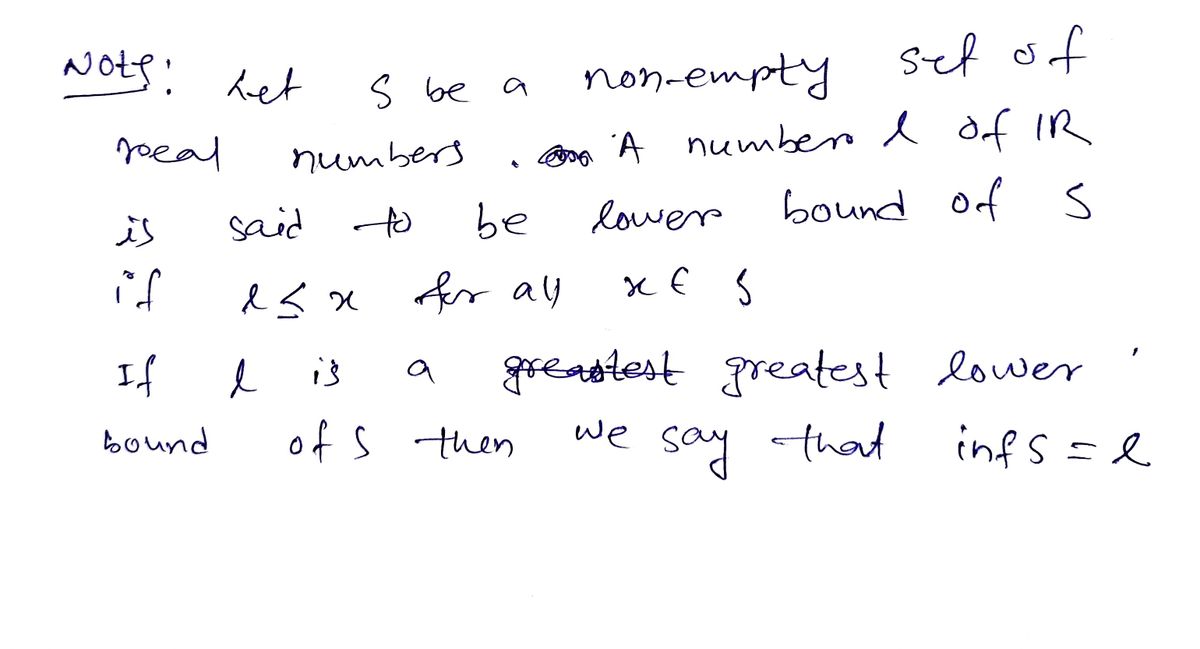 Note: Let S be a non-empty set of
real numbers. A number l of IR
is said to be lower bound of S
if l ≤ x for all x ∈ S
If l is a greatest greatest lower
bound of S then we say that inf S = l